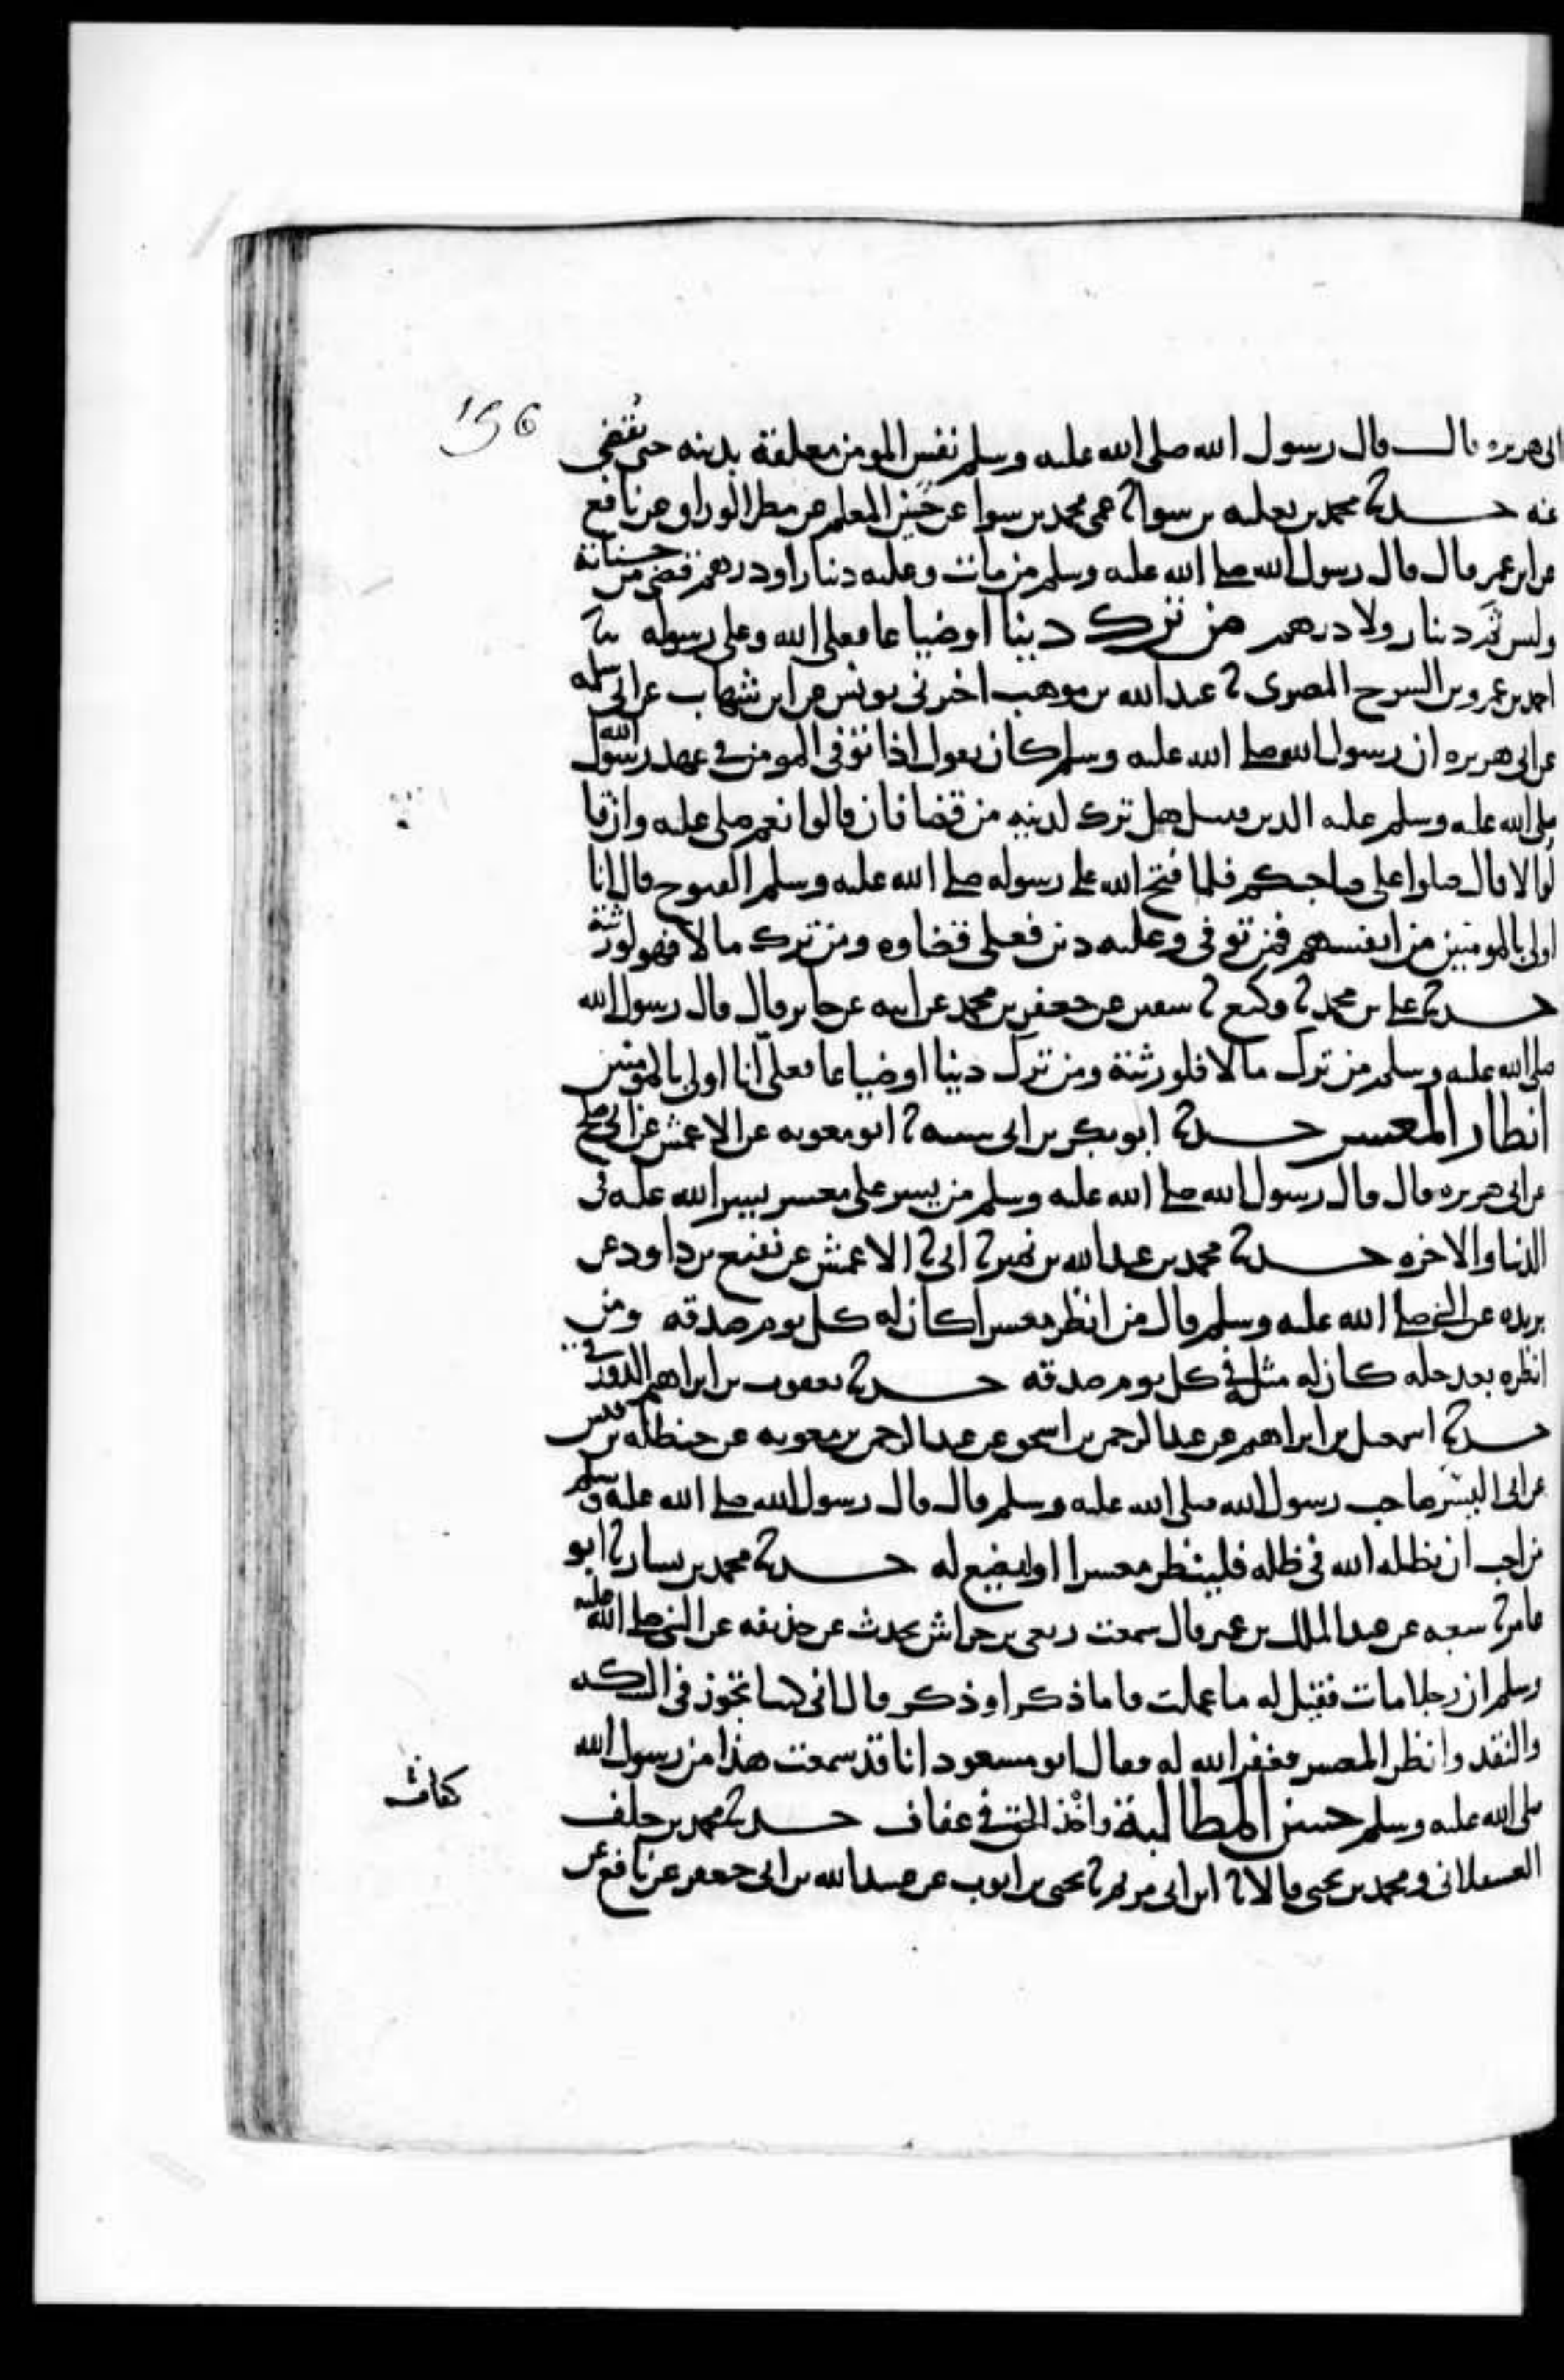 156
ابى هريره قال قال رسول الله صلى الله عليه وسلم نفس المومن معلقة بدينه حتى يقضى
عنه حدثنا محمد بن ثعلبه بن سوا ثنا عمى محمد بن سوا عن حسين المعلم عن مطر الوراق عن نافع
عن ابن عمر قال قال رسول الله صلى الله عليه وسلم من مات وعليه دينار او درهم قضى من حسناته
وليس ثم دينار ولا درهم من ترك دينا او ضياعا فعلى الله وعلى رسوله ثنا
احمد بن عمرو بن السرح المصرى ثنا عبد الله بن موهب اخبرنى يونس عن ابن شهاب عن ابى سلمه
عن ابى هريره ان رسول الله صلى الله عليه وسلم كان يقول اذا توفى المومن فى عهد رسول الله
صلى الله عليه وسلم عليه الدين فيسل هل ترك لدينه من قضا فان قالوا نعم صلى عليه وان قا
لوا لا قال صلوا على صاحبكم فلما فتح الله على رسوله صلى الله عليه وسلم الفتوح قال انا
اولى بالمومنين من انفسهم فمن توفى وعليه دين فعلى قضاوه ومن ترك مالا فهو لورثته
حدثنا على بن محمد ثنا وكيع ثنا سفين عن جعفر بن محمد عن ابيه عن جابر قال قال رسول الله
صلى الله عليه وسلم من ترك مالا فلورثته ومن ترك دينا او ضياعا فعلىّ انا اولى بالمومنين
انظار المعسر حدثنا ابو بكر بن ابى شيبه ثنا ابو معويه عن الاعمش عن ابى صلح
عن ابى هريره قال قال رسول الله صلى الله عليه وسلم من يسر على معسر يسر الله عليه فى
الدنيا والاخره حدثنا محمد بن عبد الله بن نمير ثنا ابى ثنا الاعمش عن نفيع بن داود عن
بريده عن النبى صلى الله عليه وسلم قال من انظر معسرا كان له كل يوم صدقه ومن
انظره بعد حله كان له مثله فى كل يوم صدقه حدثنا يعقوب بن ابراهيم الدورقى
حدثنا اسمعيل بن ابراهيم عن عبد الرحمن بن اسحق عن عبد الرحمن بن معويه عن حنظله بن قيس
عن ابى اليسر صاحب رسول الله صلى الله عليه وسلم قال قال رسول الله صلى الله عليه وسلم
من احب ان يظله الله فى ظله فلينظر معسرا او ليضع له حدثنا محمد بن بشار ثنا ابو
عامر ثنا شعبه عن عبد الملك بن عمير قال سمعت ربعى بن حراش يحدث عن حذيفه عن النبى صلى الله عليه
وسلم ان رجلا مات فقيل له ما عملت فاما ذكر او ذكر قال انى كنت اتجوز فى السكه
والنقد وانظر المعسر فغفر الله له فقال ابو مسعود انا قد سمعت هذا من رسول الله
صلى الله عليه وسلم حسن المطالبة واخذ الحق فى عفاف حدثنا محمد بن خلف
العسقلانى ومحمد بن يحيى قالا ثنا ابن ابى مريم ثنا يحيى بن ايوب عن عبيد الله بن ابى جعفر عن نافع عن
كفاف